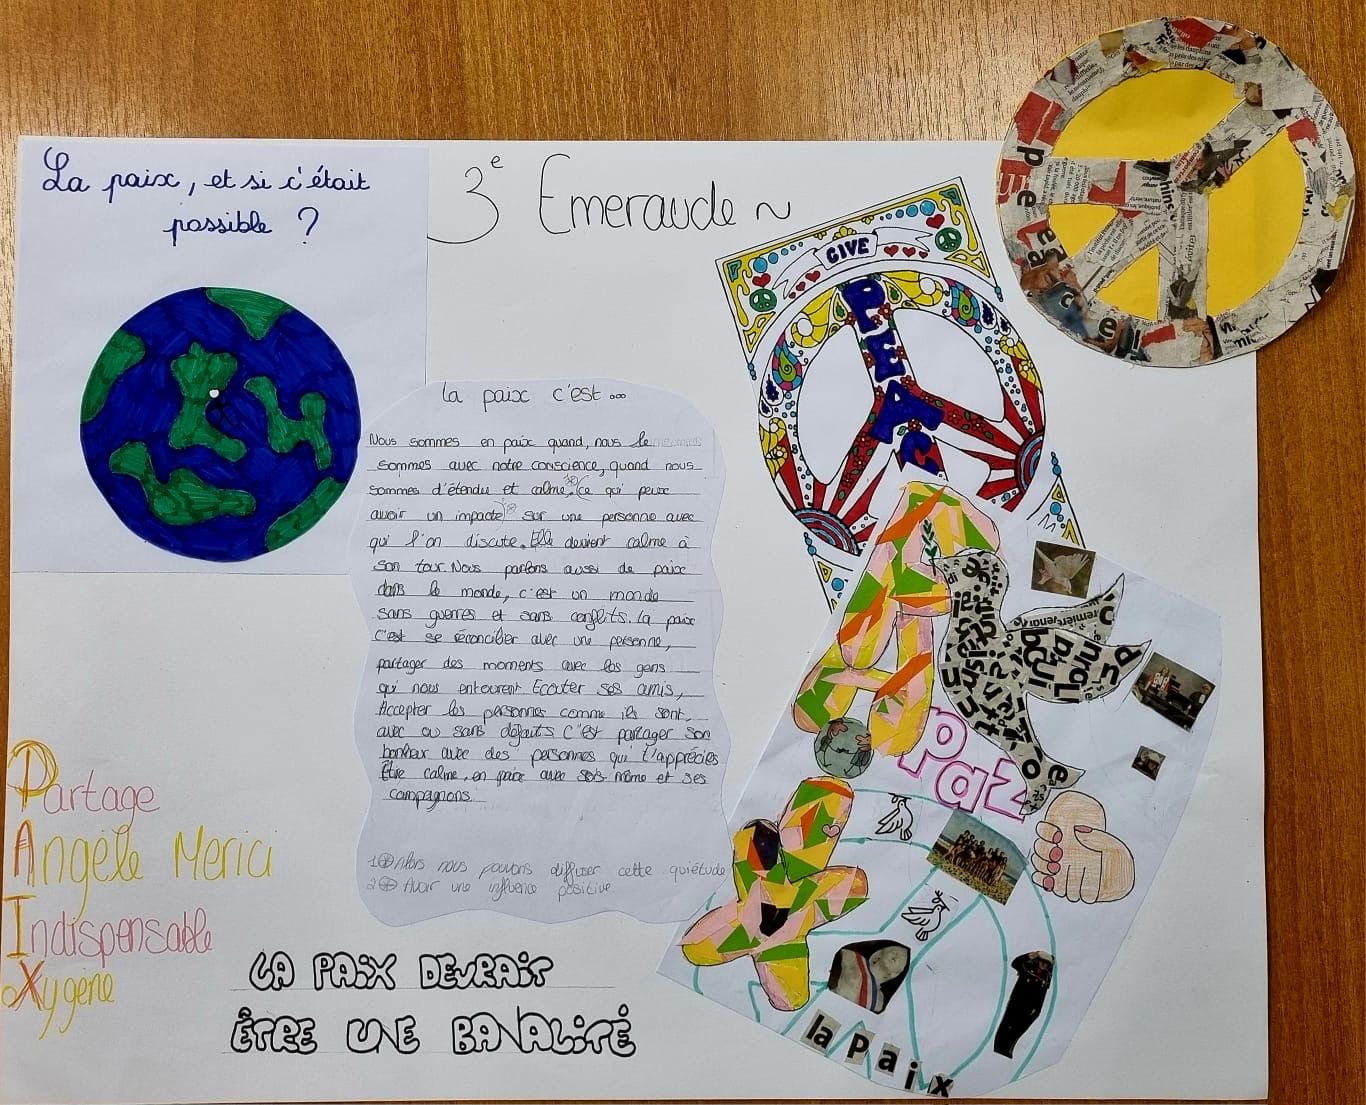 La paix, et si c'était
possible ?
3e Emeraude ~
GIVE
PEACE
la paix c'est ...
Nous sommes en paix quand, nous le
sommes avec notre conscience, quand nous
sommes d'étendu et calme, ce qui peux
avoir un impacte sur une personne avec
qui l'on discute. Elle devient calme à
son tour. Nous parlons aussi de paix
dans le monde, c'est un monde
sans guerres et sans conflits. la paix
c'est se réconcilier avec une personne,
partager des moments avec les gens
qui nous entourent Ecouter ses amis,
Accepter les personnes comme ils sont,
avec ou sans défauts c'est partager son
bonheur avec des personnes qui t'apprécies
Être calme, en paix avec sois-même et ses
compagnons.
1 Alors nous pouvons diffuser cette quiétude
2 Avoir une influence positive
Partage
Angèle Merici
Indispensable
oXygène
LA PAIX DEVRAIT
ÊTRE UNE BANALITÉ
PAIX
paz
la Paix